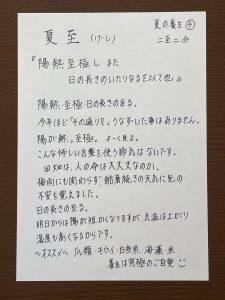 夏の養生④
夏至(げし)
二至二分
『陽熱至極しまた
日の長きのいたりなるを以て也』
陽熱、至極・日の長きの至る。
今年ほど「その通り!」とうなずいた事はありません。
陽が熱。至極。よーく見る。
こんな怖しい言葉を使う節気はないです。
田畑は、人の命は大丈夫なのか。
梅雨にも関わらず酷暑続きの天気に先の
不安を覚えました。
日の長きの至る。
明日からは陽が短かくなりますが、気温は上がり
湿度も高くなるからです。
〜オススメ〜 瓜類・キウイ・白身魚・海藻・米
養生は究極のご自愛